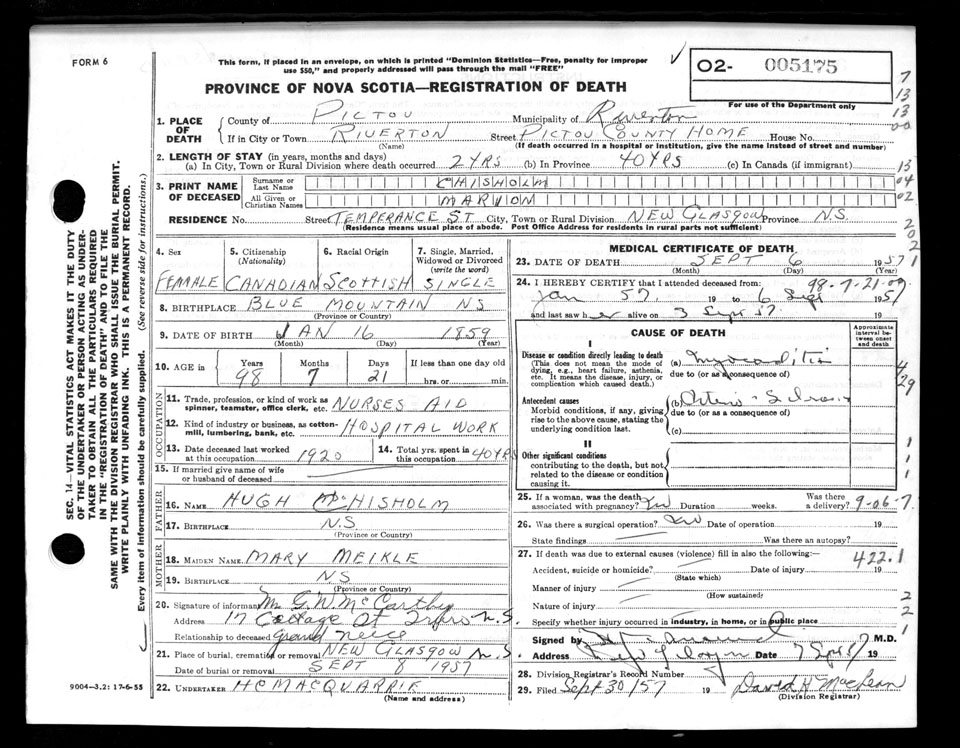 FORM 6
This form, if placed in an envelope, on which is printed "Dominion Statistics—Free, penalty for improper
use $50," and properly addressed will pass through the mail "FREE"
O2- 005175
For use of the Department only
PROVINCE OF NOVA SCOTIA—REGISTRATION OF DEATH
1. PLACE OF DEATH County of PICTOU Municipality of Riverton
If in City or Town RIVERTON Street PICTOU COUNTY HOME House No.
(Name) (If death occurred in a hospital or institution, give the name instead of street and number)
2. LENGTH OF STAY (in years, months and days)
(a) In City, Town or Rural Division where death occurred 2 YRS (b) In Province 40 YRS (c) In Canada (if immigrant)
3. PRINT NAME OF DECEASED Surname or Last Name CHISHOLM
All Given or Christian Names MARION
RESIDENCE No. Street TEMPERANCE ST City, Town or Rural Division NEW GLASGOW Province N.S.
(Residence means usual place of abode. Post Office Address for residents in rural parts not sufficient)
4. Sex 5. Citizenship (Nationality) 6. Racial Origin 7. Single, Married, Widowed or Divorced (write the word)
FEMALE CANADIAN SCOTTISH SINGLE
8. BIRTHPLACE BLUE MOUNTAIN NS
(Province or Country)
9. DATE OF BIRTH JAN 16 1859
(Month) (Day) (Year)
10. AGE in Years Months Days If less than one day old
98 7 21 hrs. or min.
OCCUPATION
11. Trade, profession, or kind of work as spinner, teamster, office clerk, etc. NURSES AID
12. Kind of industry or business, as cotton-mill, lumbering, bank, etc. HOSPITAL WORK
13. Date deceased last worked at this occupation 1920 14. Total yrs. spent in this occupation 40 YRS
15. If married give name of wife or husband of deceased
FATHER
16. NAME HUGH CHISHOLM
17. BIRTHPLACE N.S
(Province or Country)
MOTHER
18. MAIDEN NAME MARY MEIKLE
19. BIRTHPLACE NS
(Province or Country)
20. Signature of informant Mrs G.W. McCarthy
Address 17 Cottage St Truro N.S.
Relationship to deceased grand niece
21. Place of burial, cremation or removal NEW GLASGOW N.S
Date of burial or removal SEPT 8 1957
22. UNDERTAKER H C MACQUARRIE
(Name and address)
9004—3.2: 17-6-55
MEDICAL CERTIFICATE OF DEATH
23. DATE OF DEATH SEPT 6 1957
(Month) (Day) (Year)
24. I HEREBY CERTIFY that I attended deceased from: 98-7-21-09
Jan 57 19 to 6 Sept 1957
and last saw her alive on 3 Sept 57.
CAUSE OF DEATH
Approximate interval between onset and death
I
Disease or condition directly leading to death (a) Myocarditis
(This does not mean the mode of dying, e.g., heart failure, asthenia, etc. It means the disease, injury, or complication which caused death.)
due to (or as a consequence of)
Antecedent causes (b)
Morbid conditions, if any, giving rise to the above cause, stating the underlying condition last.
due to (or as a consequence of)
(c)
II
Other significant conditions
contributing to the death, but not related to the disease or condition causing it.
25. If a woman, was the death associated with pregnancy? No Duration weeks. Was there a delivery? 9-06-7
26. Was there a surgical operation? No Date of operation 19
State findings Was there an autopsy?
27. If death was due to external causes (violence) fill in also the following:— 422.1
Accident, suicide or homicide? Date of injury 19
(State which)
Manner of injury
(How sustained)
Nature of injury
Specify whether injury occurred in industry, in home, or in public place
Signed by M.D.
Address Date 7 Sept 57 19
28. Division Registrar's Record Number
29. Filed Sept 30/57 19 David H MacLean
(Division Registrar)
7
13
13
00
13
04
02
2
0
2
1
4
29
1
1
1
2
2
1
SEC. 14—VITAL STATISTICS ACT MAKES IT THE DUTY
OF THE UNDERTAKER OR PERSON ACTING AS UNDER-
TAKER TO OBTAIN ALL THE PARTICULARS REQUIRED
IN THE "REGISTRATION OF DEATH" AND TO FILE THE
SAME WITH THE DIVISION REGISTRAR WHO SHALL ISSUE THE BURIAL PERMIT.
WRITE PLAINLY WITH UNFADING INK. THIS IS A PERMANENT RECORD.
Every item of information should be carefully supplied. (See reverse side for instructions.)